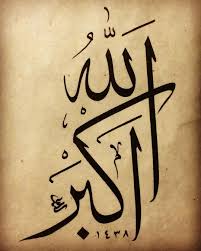 الله
أكبر
١٤٣٨